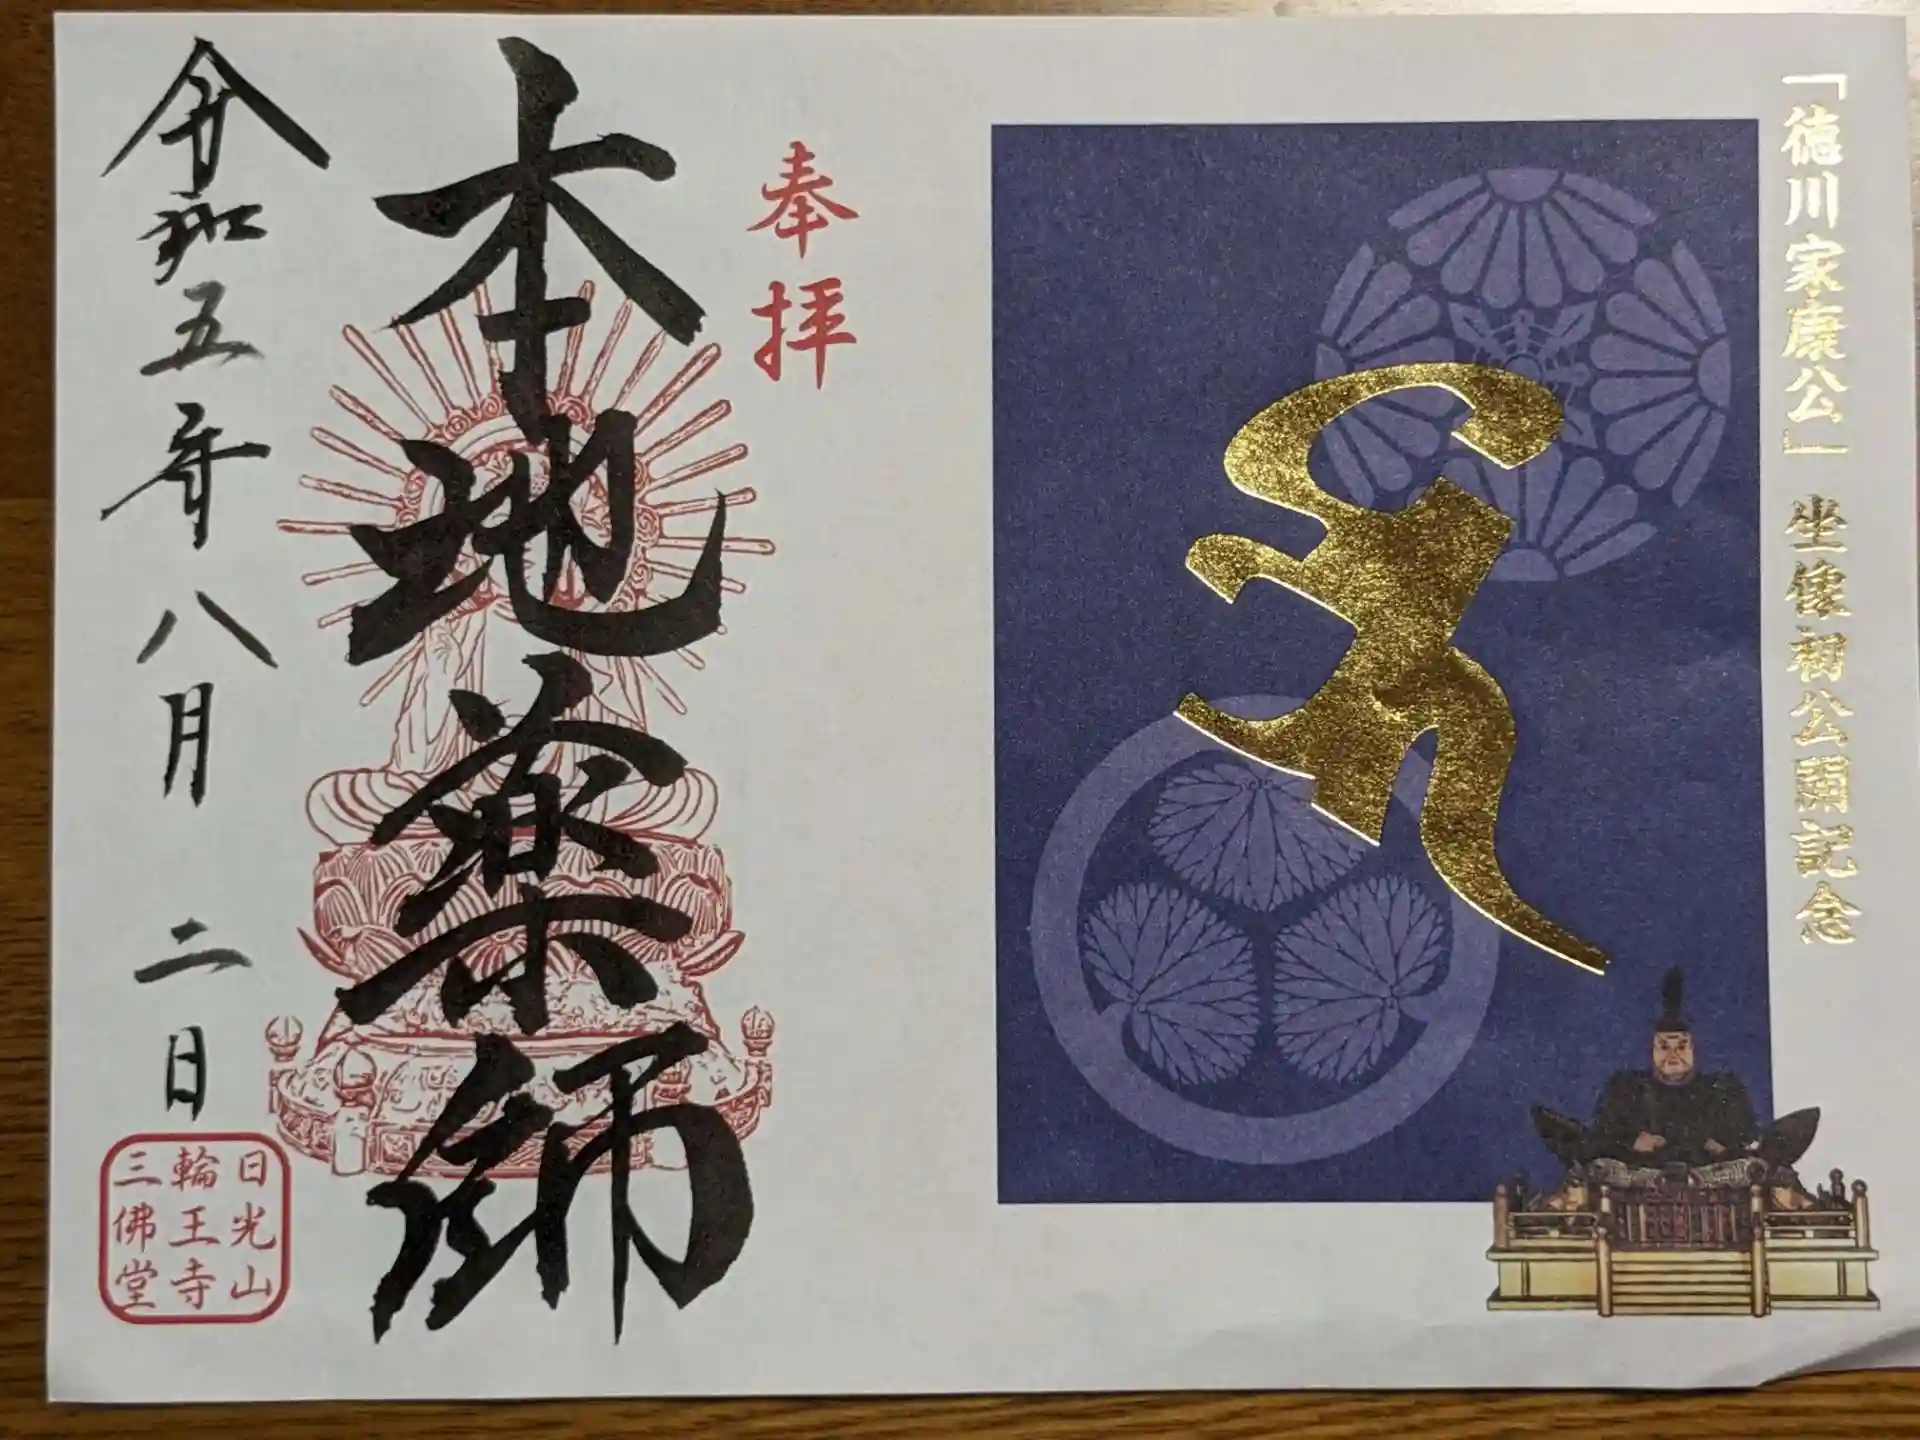 「徳川家康公」坐像初公開記念
奉拝
本地薬師
令和五年八月二日
日光山
輪王寺
三佛堂